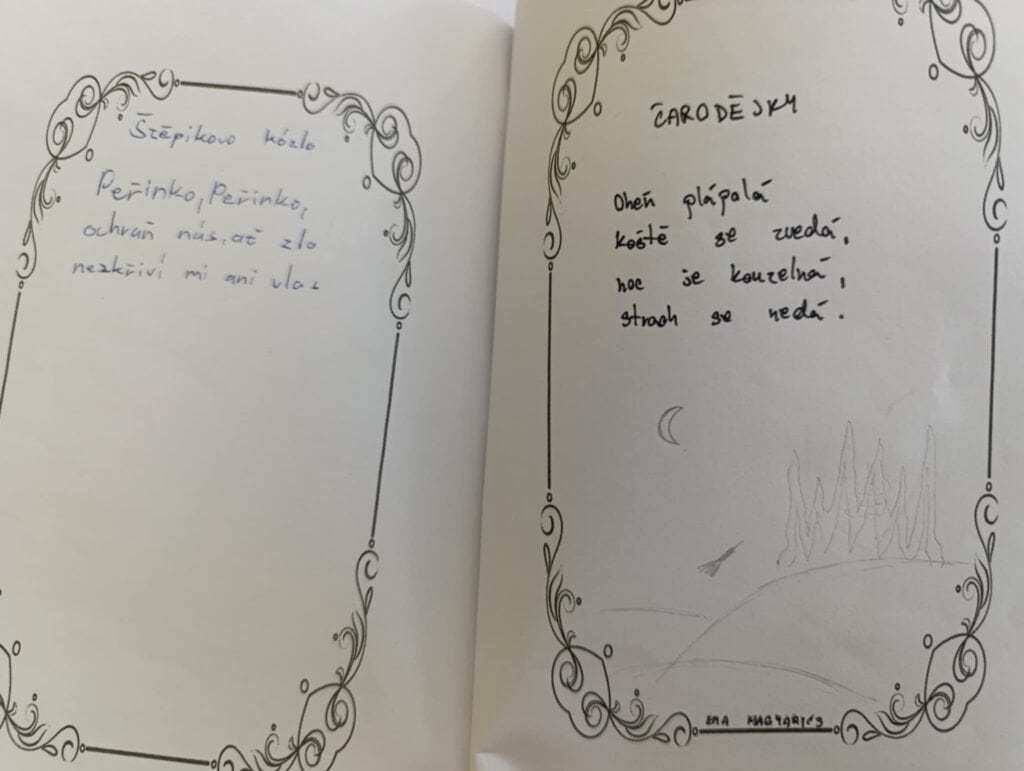 Štěpikovo kózlo
Peřinko, Peřinko,
ochraň nás, ať zlo
nezkřiví mi ani vlas
ČARODĚJKY
Oheň plápolá
koště se zvedá,
noc je kouzelná,
strach se nedá.
EMA MAGYARICS